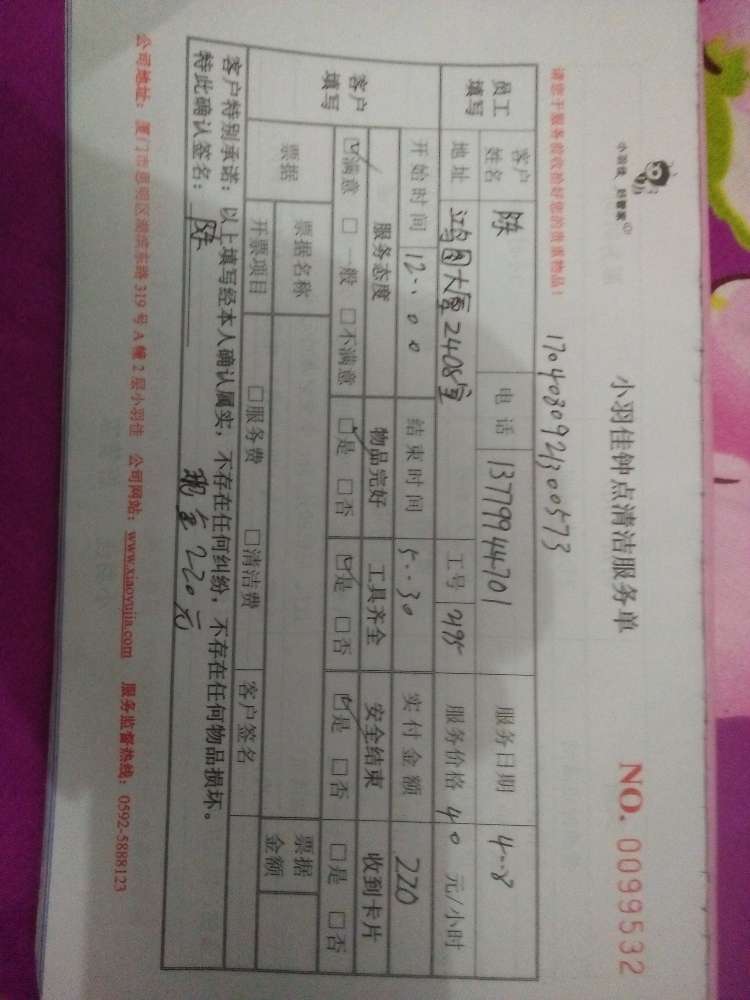 小羽佳 好管家
小羽佳钟点清洁服务单
NO. 0099532
1704080921300573
请您于服务前收拾好您的贵重物品!
员工填写 客户姓名 陈 电话 13779944701 服务日期 4..8
地址 鸿图大厦2408室 工号 2195 服务价格 40 元/小时
客户填写 开始时间 12..00 结束时间 5..30 实付金额 220
服务态度 物品完好 工具齐全 安全结束 收到卡片
☑满意 □一般 □不满意 ☑是 □否 ☑是 □否 ☑是 □否 □是 □否
票据 票据名称 票据金额
开票项目 □服务费 □清洁费 客户签名
客户特别承诺:以上填写经本人确认属实,不存在任何纠纷,不存在任何物品损坏。
特此确认签名: 陈 现金220元
公司地址:厦门市思明区湖滨东路319号A幢2层小羽佳 公司网站:www.xiaoyujia.com 服务监督热线:0592-5888123